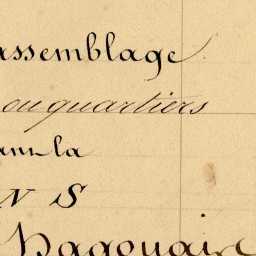 assemblage
ou quartiers
dans la
N S
Hagouaire